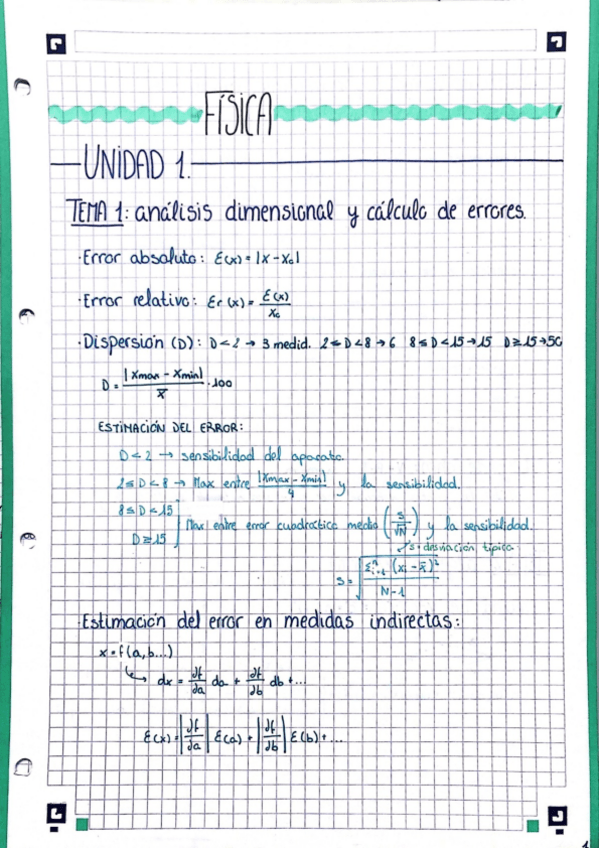 FÍSICA
UNIDAD 1.
TEMA 1: análisis dimensional y cálculo de errores.
·Error absoluto: ε(x) = |x - x₀|
·Error relativo: εr (x) = ε(x)/x₀
·Dispersión (D): D < 2 → 3 medid. 2 ≤ D < 8 → 6 8 ≤ D < 15 → 15 D ≥ 15 → 50
D = |xmax - xmin| / x̅ · 100
ESTIMACIÓN DEL ERROR:
D < 2 → sensibilidad del aparato.
2 ≤ D < 8 → Max entre |xmax - xmin| / 4 y la sensibilidad.
8 ≤ D < 15
D ≥ 15 ] Max entre error cuadrático medio (s/√N) y la sensibilidad.
s = desviación típica
s = √(Σⁿᵢ₌₁ (xᵢ - x̅)² / N-1)
·Estimación del error en medidas indirectas:
x = f(a, b...)
↳ dx = ∂f/∂a da + ∂f/∂b db + ...
ε(x) = |∂f/∂a| ε(a) + |∂f/∂b| ε(b) + ...
1